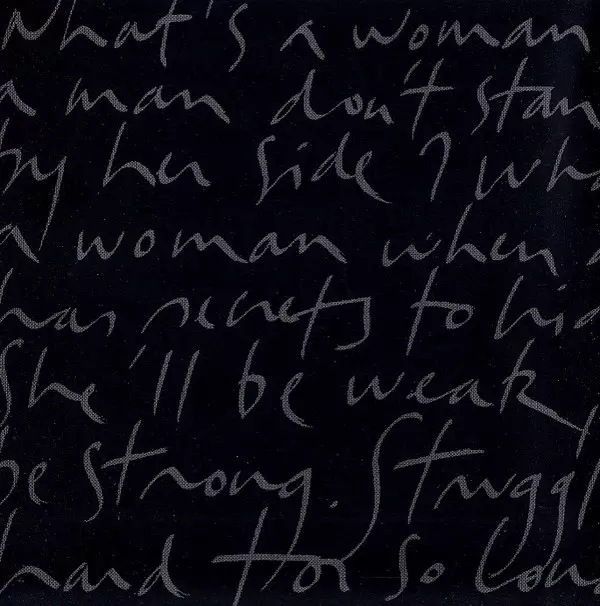 What's a woman
a man don't stan
by her side? wha
a woman when
has secrets to hid
She'll be weak,
be strong. Struggl
hard for so long